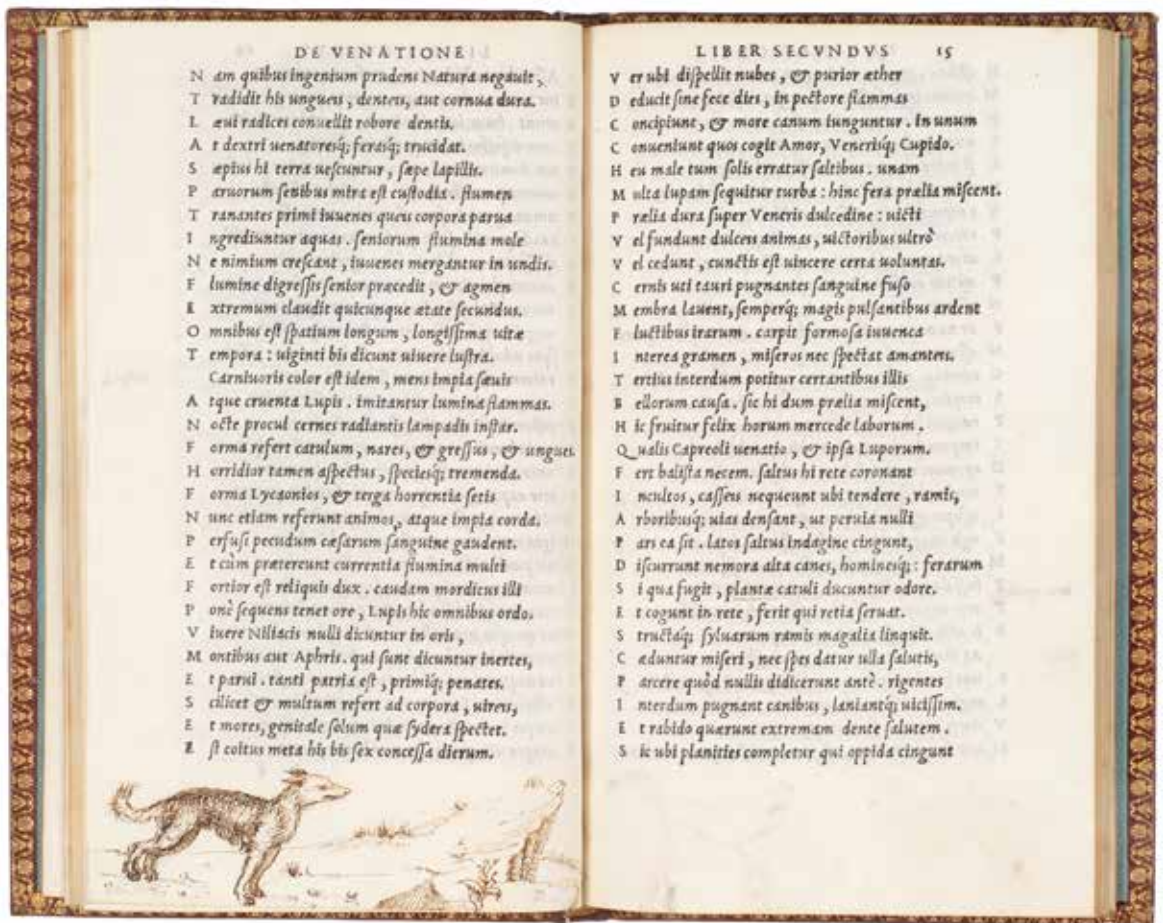 DE VENATIONE
N am quibus ingenium prudens Natura negauit,
T radidit his ungueis, denteis, aut cornua dura.
L æui radices conuellit robore dentis,
A t dextri uenatoresq; ferasq; trucidat.
S æpius hi terra uescuntur, sæpe lapillis.
P aruorum senibus mira est custodia. flumen
T ranantes primi iuuenes queis corpora parua
I ngrediuntur aquas. seniorum flumina mole
N e nimium crescant, iuuenes mergantur in undis.
F lumine digressis senior præcedit, & agmen
E xtremum claudit quicunque ætate secundus.
O mnibus est spatium longum, longissima uitæ
T empora: uiginti bis dicunt uiuere lustra.
Carniuoris color est idem, mens impia sæuis
A tque cruenta Lupis. imitantur lumina flammas.
N octe procul cernes radiantis lampadis instar.
F orma refert catulum, nares, & gressus, & ungues
H orridior tamen aspectus, speciesq; tremenda.
F orma Lycaonios, & terga horrentia setis
N unc etiam referunt animos, atque impia corda.
P erfusi pecudum cæsarum sanguine gaudent.
E t cùm prætereunt currentia flumina multi
F ortior est reliquis dux. caudam mordicus illi
P onè sequens tenet ore, Lupis hic omnibus ordo.
V iuere Niliacis nulli dicuntur in oris,
M ontibus aut Aphris. qui sunt dicuntur inertes,
E t parui. tanti patria est, primiq; penates.
S cilicet & multum refert ad corpora, uireis,
E t mores, genitale solum quæ sydera spectet.
E st coitus meta his bis sex concessa dierum.
LIBER SECVNDVS 15
V er ubi dispellit nubes, & purior æther
D educit sine fece dies, in pectore flammas
C oncipiunt, & more canum iunguntur. in unum
C onueniunt quos cogit Amor, Venerisq; Cupido.
H eu male tum solis erratur saltibus. unam
M ulta lupam sequitur turba: hinc fera prælia miscent.
P rælia dura super Veneris dulcedine: uicti
V el fundunt dulceis animas, uictoribus ultrò
V el cedunt, cunctis est uincere certa uoluntas.
C ernis uti tauri pugnantes sanguine fuso
M embra lauent, semperq; magis pulsantibus ardent
F luctibus irarum. carpit formosa iuuenca
I nterea gramen, miseros nec spectat amanteis.
T ertius interdum potitur certantibus illis
B ellorum causa. sic hi dum prælia miscent,
H ic fruitur felix horum mercede laborum.
Q ualis Capreoli uenatio, & ipsa Luporum.
F ert balista necem. saltus hi rete coronant
I ncultos, casseis nequeunt ubi tendere, ramis,
A rboribusq; uias densant, ut peruia nulli
P ars ea sit. latos saltus indagine cingunt,
D iscurrunt nemora alta canes, hominesq;: ferarum
S i qua fugit, plantæ catuli ducuntur odore.
E t cogunt in rete, ferit qui retia seruat.
S tructaq; syluarum ramis magalia linquit.
C æduntur miseri, nec spes datur ulla salutis,
P arcere quòd nullis didicerunt antè. rigentes
I nterdum pugnant canibus, laniantq; uicissim.
E t rabido quærunt extremam dente salutem.
S ic ubi planities completur qui oppida cingunt